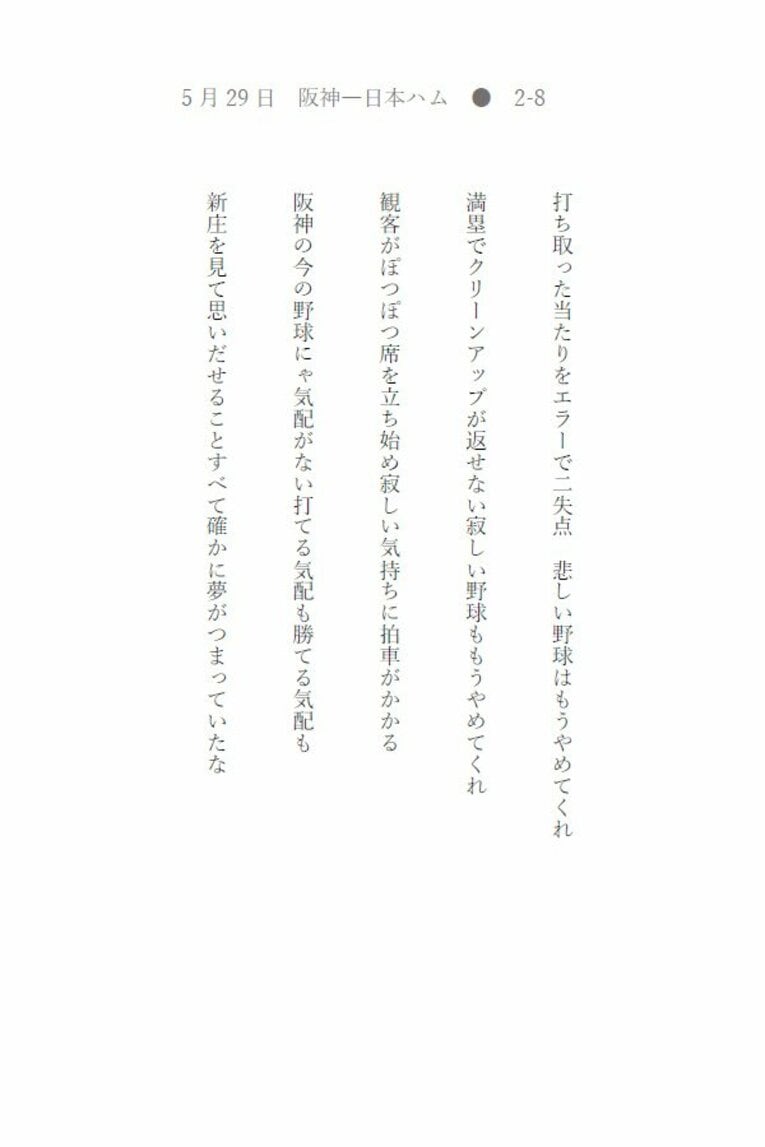 5月29日　阪神―日本ハム　●　2-8
打ち取った当たりをエラーで二失点　悲しい野球はもうやめてくれ
満塁でクリーンアップが返せない寂しい野球ももうやめてくれ
観客がぽつぽつ席を立ち始め寂しい気持ちに拍車がかかる
阪神の今の野球にゃ気配がない打てる気配も勝てる気配も
新庄を見て思いだせることすべて確かに夢がつまっていたな